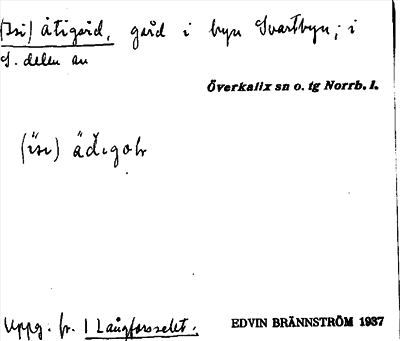 (Isi) Åtigård, gård i byn Svartbyn; i
S. delen av
Överkalix sn o. tg Norrb. l.
(isi) äd.goh
Uppg. fr. I Långforsselet.
EDVIN BRÄNNSTRÖM 1937